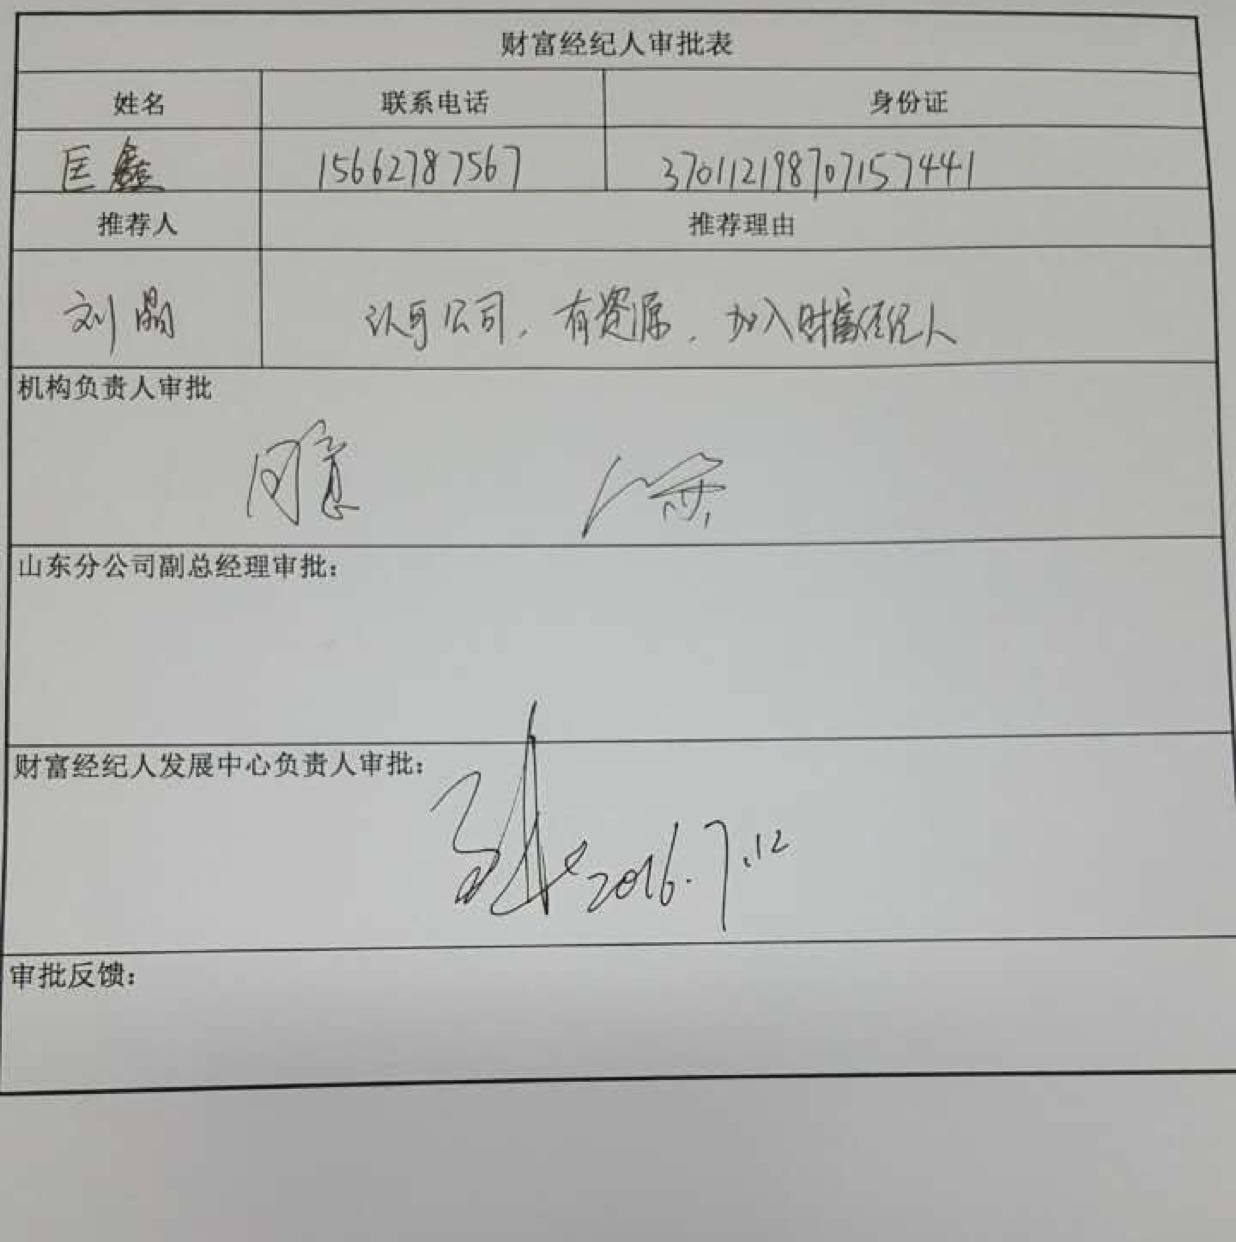 财富经纪人审批表
姓名 联系电话 身份证
匡鑫 15662787567 370112198707157441
推荐人 推荐理由
刘晶 认可公司，有资源，加入财富经纪人
机构负责人审批
同意
山东分公司副总经理审批：
财富经纪人发展中心负责人审批：
2016.7.12
审批反馈：